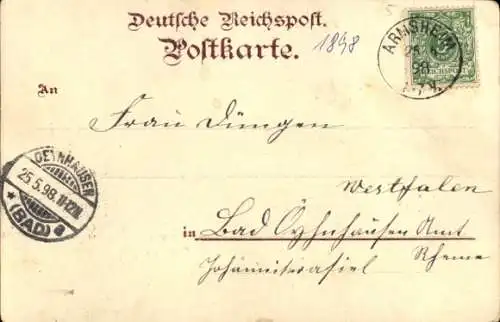 Deutsche Reichspost.
Postkarte.
1898
ARMSHEIM
98
REICHSPOST
An
Frau Düngen
OEYNHAUSEN
25.5.98.11-12V.
* (BAD) a
Westfalen
in Bad Oeynhausen Amt
Rheme
Johanniterasiel